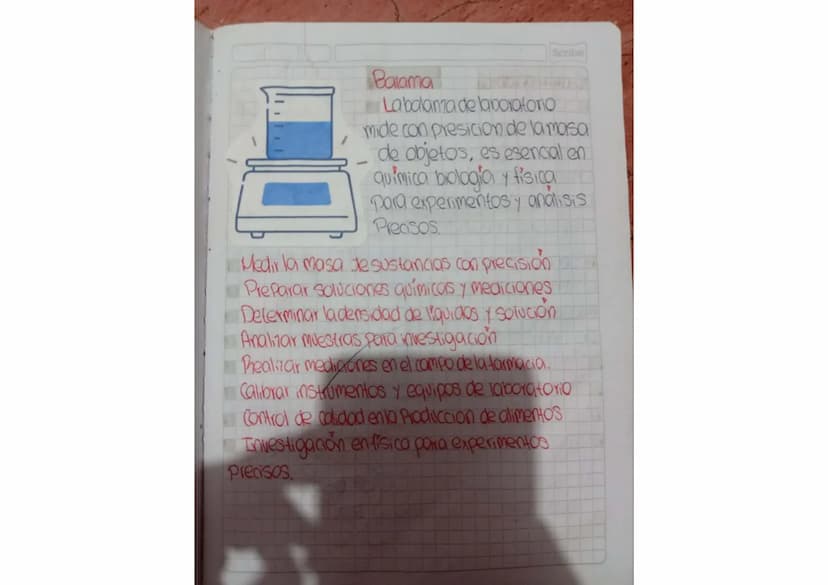 Scribe
Balama
La balama de laboratorio
mide con presicion de la masa
de objetos, es esencial en
química biología y física
para experimentos y análisis
Precisos.
Medir la masa de sustancias con precisión
Preparar soluciones químicas y mediciones
Determinar la densidad de líquidos y solución
Analizar muestras para investigación
Realizar mediciones en el campo de la farmacia.
Calibrar instrumentos y equipos de laboratorio
Control de calidad en la Producción de alimentos
Investigación en física para experimentos
Precisos.